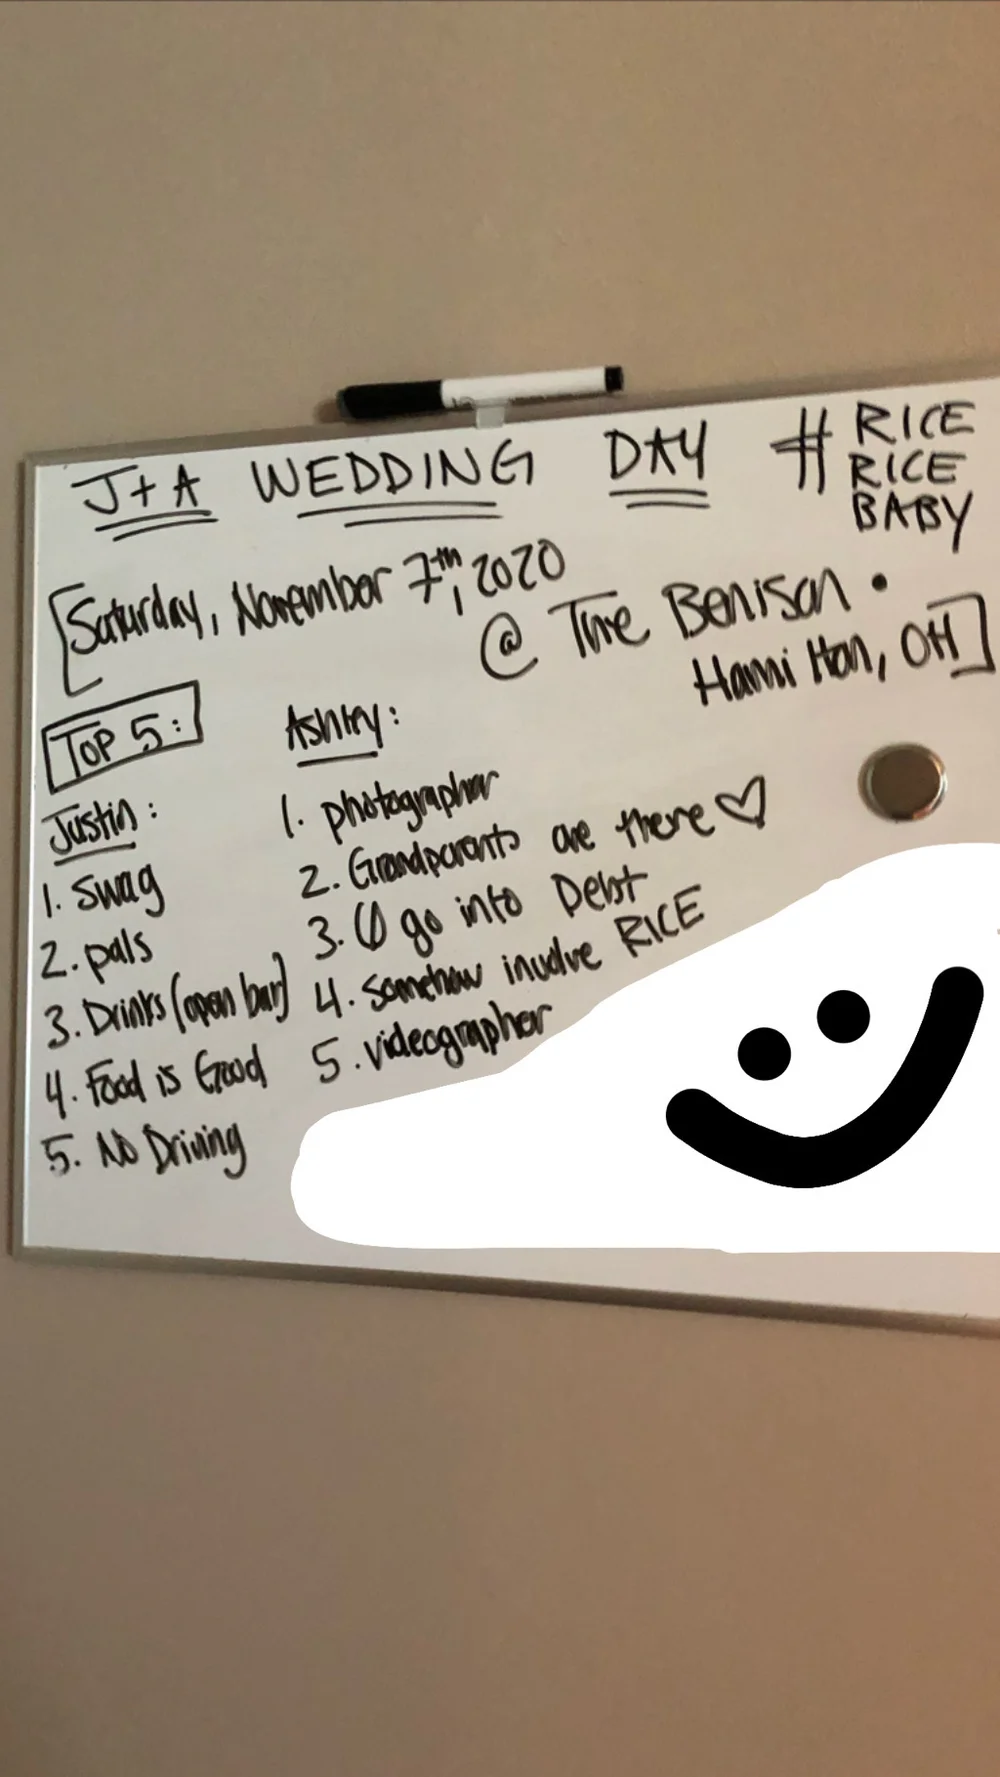 J+A WEDDING DAY # RICE
RICE
BABY
[Saturday, November 7th, 2020
@ The Benison •
Hamilton, OH]
TOP 5:
Justin:
1. Swag
2. pals
3. Drinks (open bar)
4. Food is Good
5. No Driving
Ashley:
1. photographer
2. Grandparents are there ♡
3. go into Debt
4. Somehow involve RICE
5. videographer